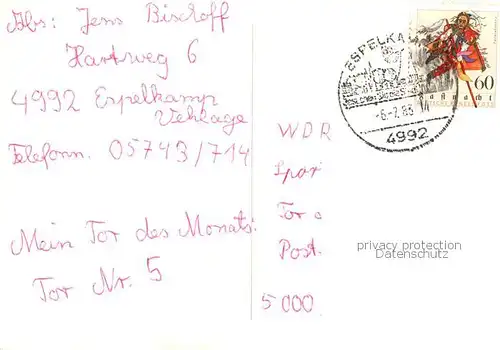 Abs: Jens Bischoff
Hartweg 6
4992 Espelkamp
Vehlage
Telefonn. 05743/714
Mein Tor des Monats:
Tor Nr. 5
ESPELKA
-6.2.83
4992
60
Fastnacht
WDR
Spor
Tor
Post.
5000
privacy protection
Datenschutz